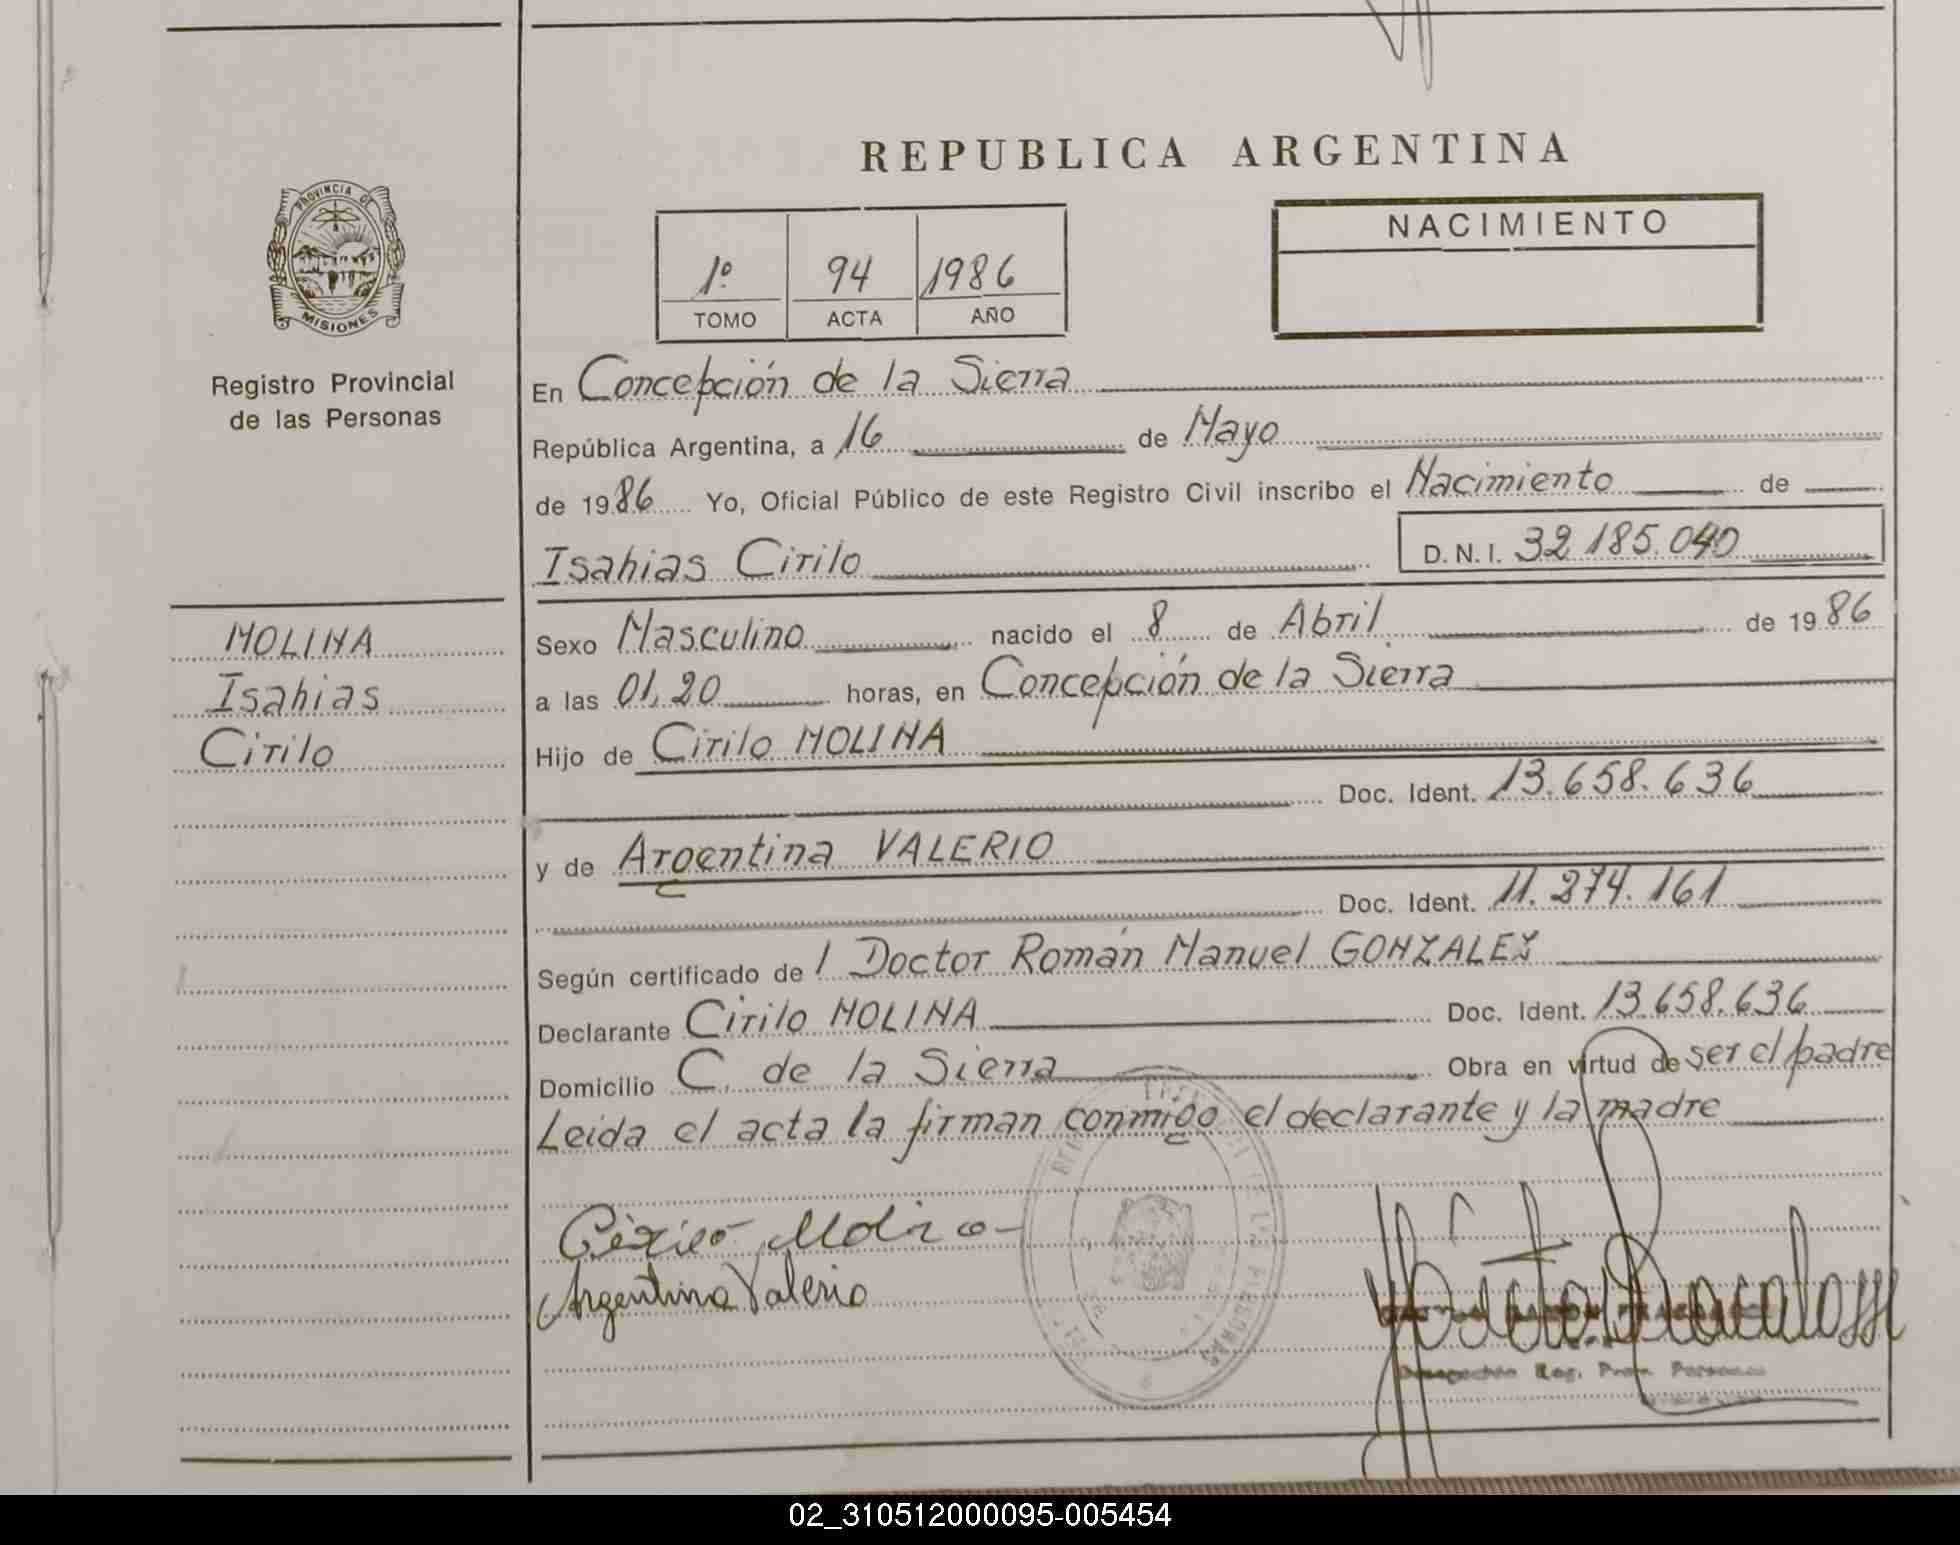 REPUBLICA ARGENTINA
PROVINCIA DE
MISIONES
Registro Provincial
de las Personas
NACIMIENTO
1º 94 1986
TOMO ACTA AÑO
En Concepción de la Sierra
República Argentina, a 16 de Mayo
de 1986 Yo, Oficial Público de este Registro Civil inscribo el Nacimiento de
Isahias Cirilo D.N.I. 32 185.040
MOLINA
Isahias
Cirilo
Sexo Masculino nacido el 8 de Abril de 1986
a las 01,20 horas, en Concepción de la Sierra
Hijo de Cirilo MOLINA
Doc. Ident. 13.658.636
y de Argentina VALERIO
Doc. Ident. 11.274.161
Según certificado de l Doctor Román Manuel GONZALEZ
Declarante Cirilo MOLINA Doc. Ident. 13.658.636
Domicilio C. de la Sierra Obra en virtud de ser el padre
Leida el acta la firman conmigo el declarante y la madre
Cirilo Molina
Argentina Valerio
Reg. Prov. Personas
02_310512000095-005454